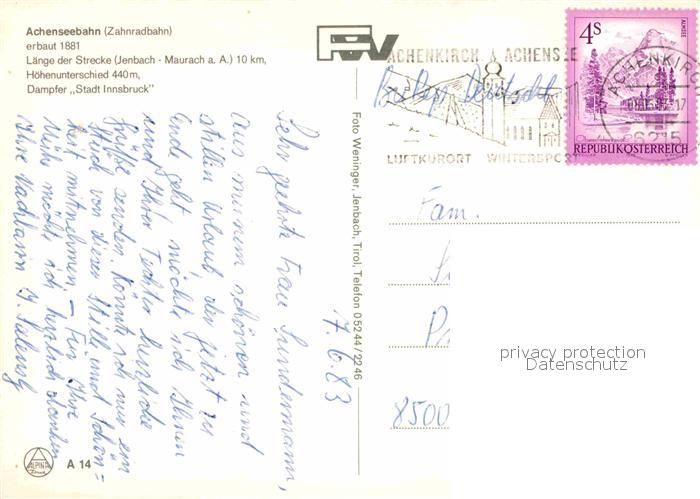 Achenseebahn (Zahnradbahn)
erbaut 1881
Länge der Strecke (Jenbach - Maurach a. A.) 10 km,
Höhenunterschied 440 m,
Dampfer „Stadt Innsbruck"
PW
ACHENKIRCH A ACHENSEE
LUFTKURORT WINTERSPORT
4S
ALMSEE
REPUBLIK ÖSTERREICH
ACHENKIRCH
6215
7.6.83
Sehr geehrte Frau Sundermann,
aus meinem schönen und
stillen Urlaub, der jetzt zu
Ende geht möchte ich Ihnen
und Ihrer Tochter herzliche
Grüße senden. Könnte ich nur ein
Stück von dieser Stille und Schön=
heit mitnehmen. – Für Ihre
Mühe möchte ich herzlich danken
Ihre Nachbarin
Foto Weninger, Jenbach, Tirol, Telefon 05244/2246
Fam.
S
P
8500
privacy protection
Datenschutz
ALPINA
A 14